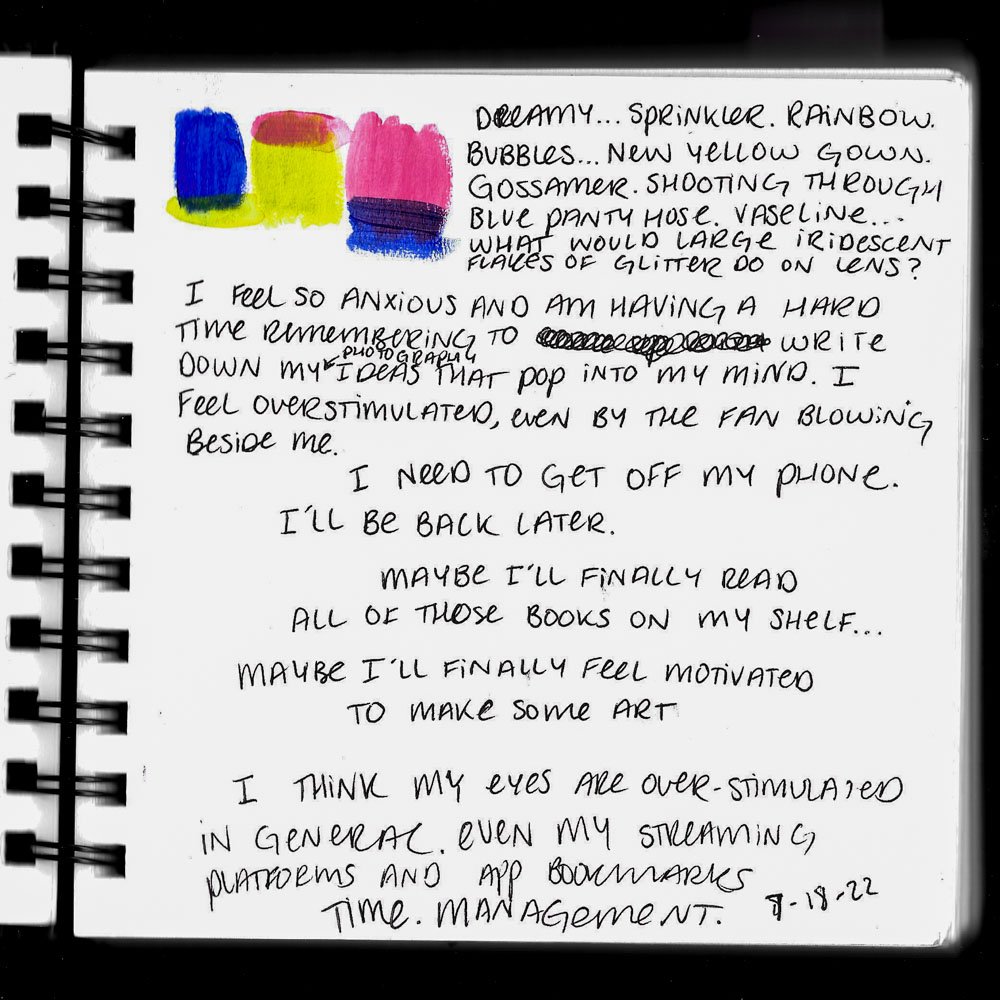 DREAMY... SPRINKLER. RAINBOW.
BUBBLES... NEW YELLOW GOWN.
GOSSAMER. SHOOTING THROUGH
BLUE PANTY HOSE. VASELINE...
WHAT WOULD LARGE IRIDESCENT
FLAKES OF GLITTER DO ON LENS?
I FEEL SO ANXIOUS AND AM HAVING A HARD
TIME REMEMBERING TO WRITE
DOWN MY PHOTOGRAPHY IDEAS THAT POP INTO MY MIND. I
FEEL OVERSTIMULATED, EVEN BY THE FAN BLOWING
BESIDE ME.
I NEED TO GET OFF MY PHONE.
I'LL BE BACK LATER.
MAYBE I'LL FINALLY READ
ALL OF THOSE BOOKS ON MY SHELF...
MAYBE I'LL FINALLY FEEL MOTIVATED
TO MAKE SOME ART
I THINK MY EYES ARE OVER-STIMULATED
IN GENERAL. EVEN MY STREAMING
PLATFORMS AND APP BOOKMARKS
TIME. MANAGEMENT.
8-18-22